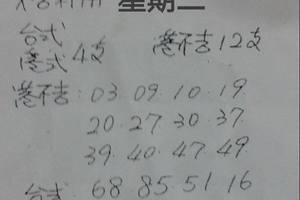 星期二
台式
港式 4支 港不吉 12支
港不吉: 03 09. 10. 19
20. 27. 30. 37
39. 40. 47. 49
台式: 68. 85. 51. 16